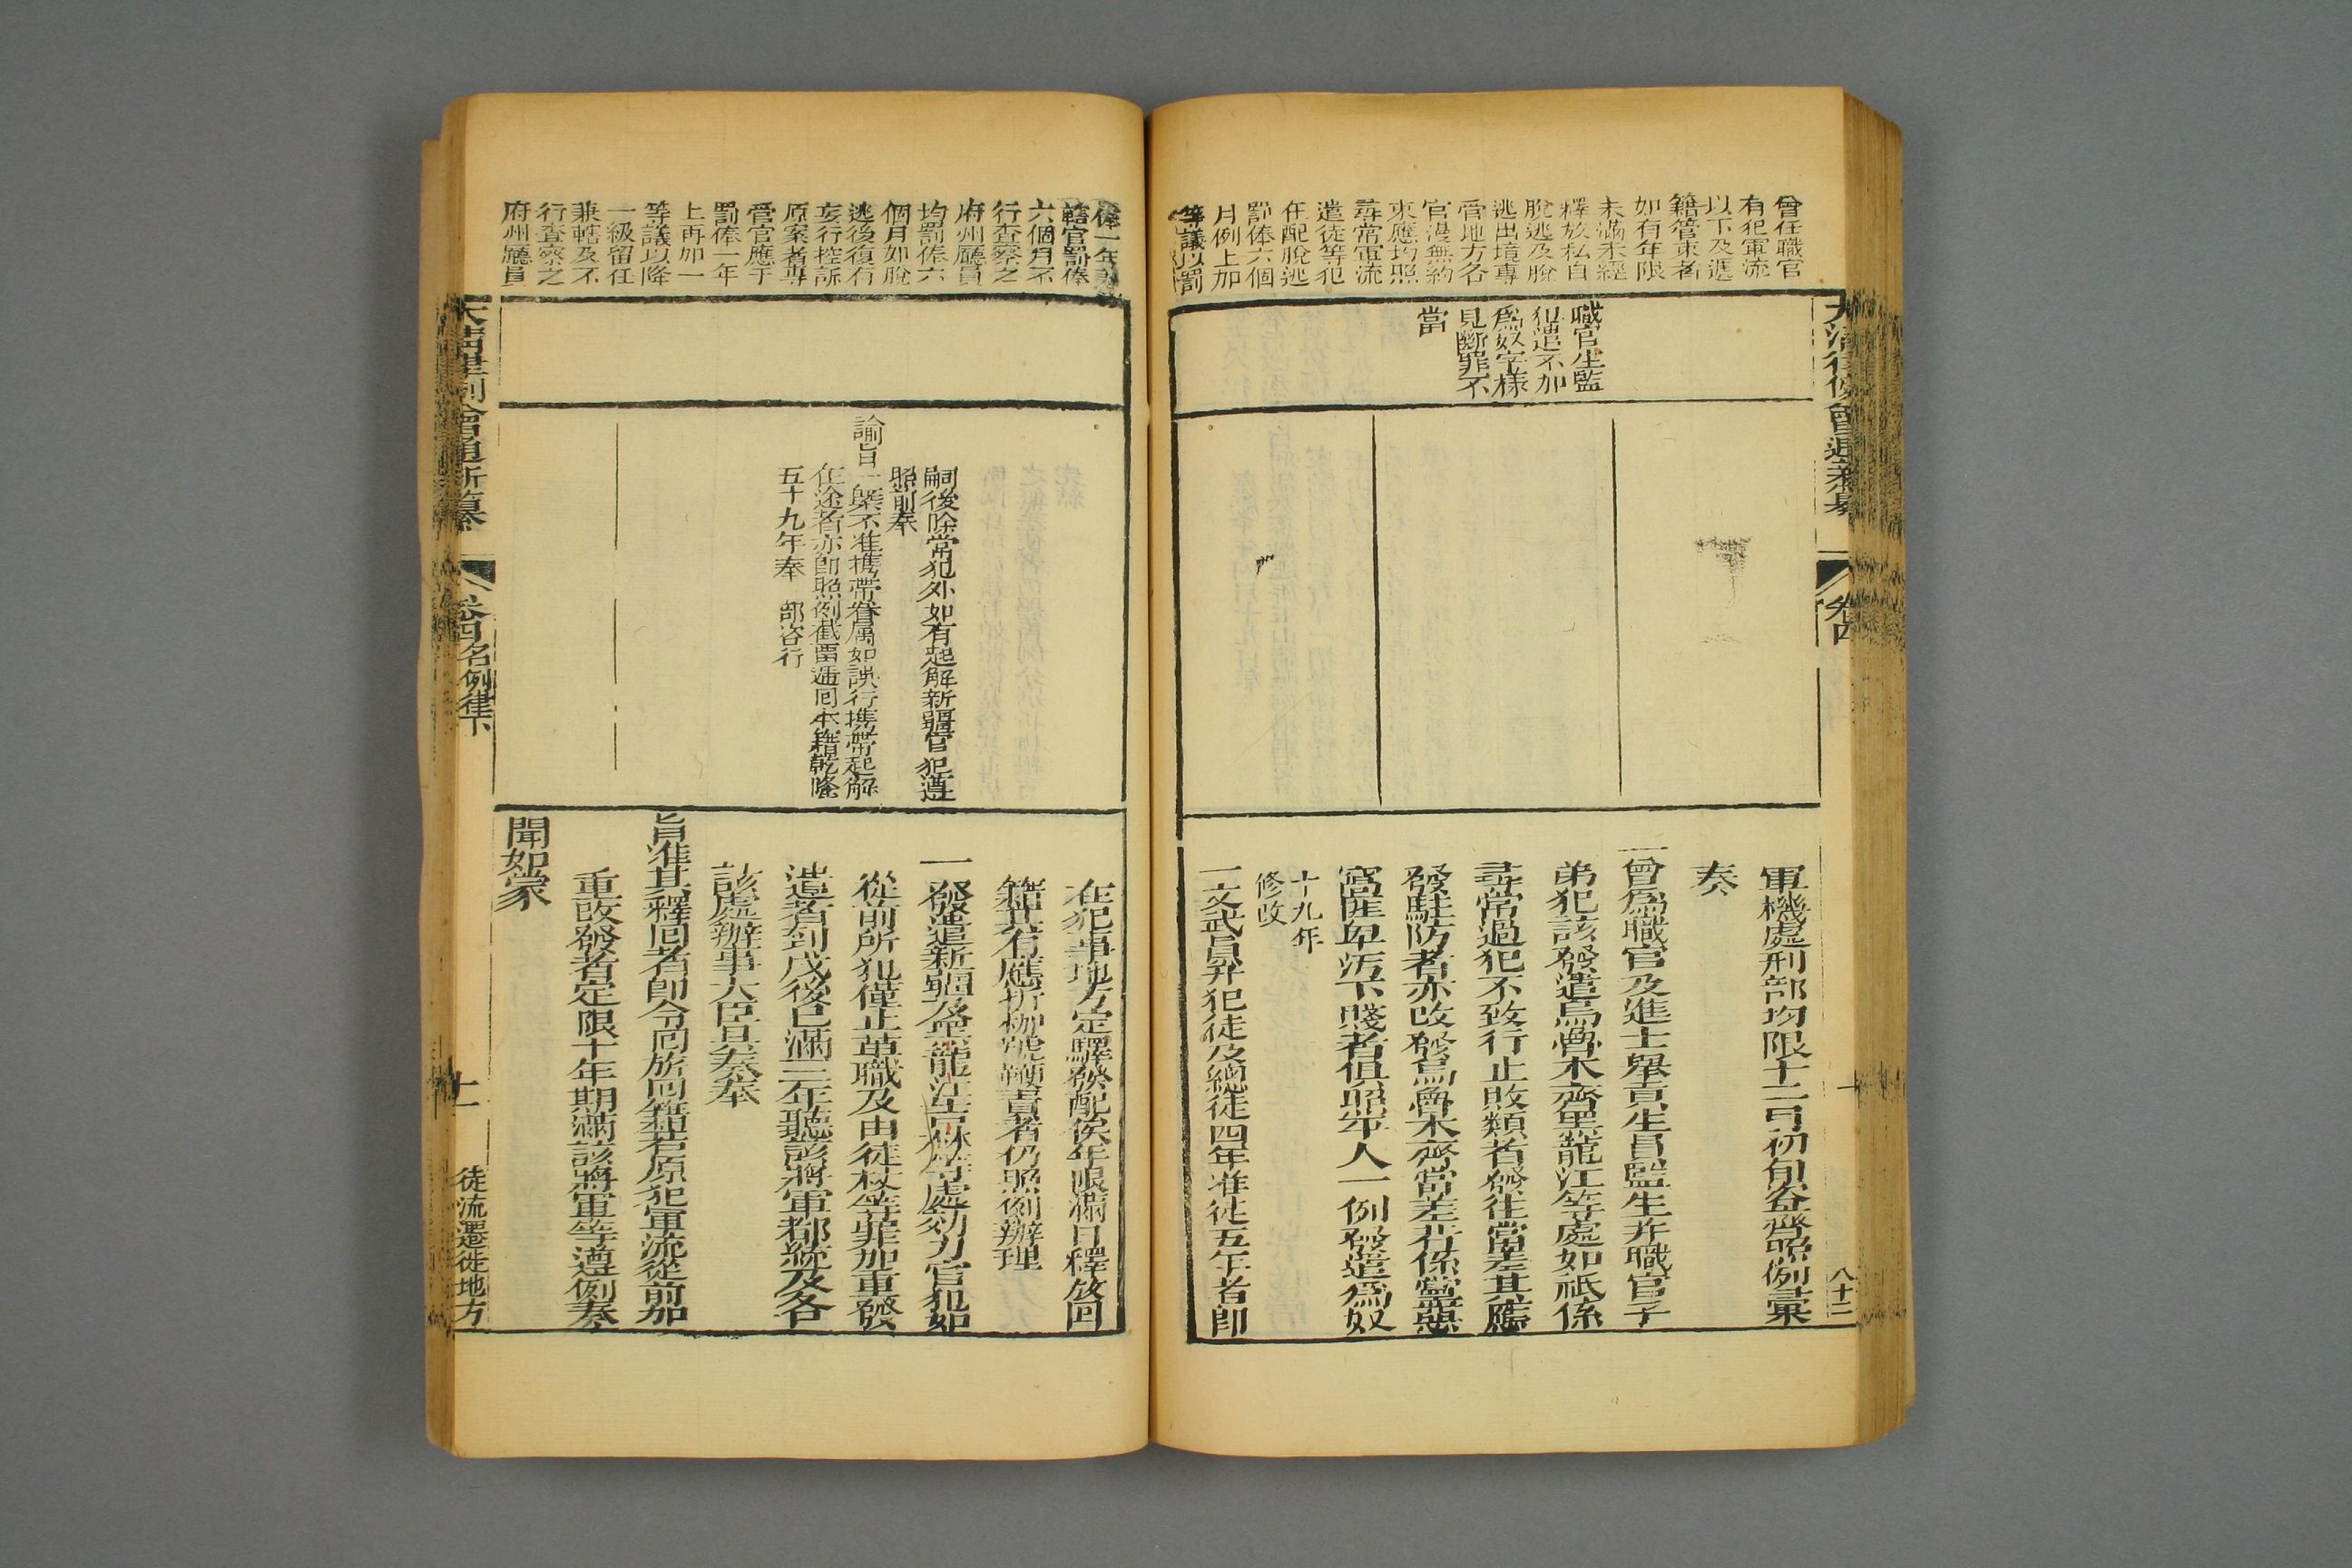 大清律例會通新纂
卷四
八十二
曾任職官
有犯軍流
以下及遞
籍管束者
如有年限
未滿未經
釋放私自
脫逃及脫
逃出境專
管地方各
官漫無約
束應均照
尋常軍流
遣徒等犯
在配脫逃
罰俸六個
月例上加
等議以罰
職官生監
犯遣不加
爲奴字樣
見斷罪不
當
軍機處刑部均限十二月初旬咨齊照例彙
奏
一曾爲職官及進士舉貢生員監生并職官子
弟犯該發遣烏魯木齊黑龍江等處如祇係
尋常過犯不致行止敗類者發往當差其應
發駐防者亦改發烏魯木齊當差若係黨惡
窩匪卑汚下賤者俱照平人一例發遣爲奴
十九年
修改
一文武員弁犯徒及總徒四年准徒五年者即
俸一年兼
轄官罰俸
六個月不
行查察之
府州廳員
均罰俸六
個月如脫
逃後復有
妄行控訴
原案者專
管官應于
罰俸一年
上再加一
等議以降
一級留任
兼轄及不
行查察之
府州廳員
嗣後除常犯外如有起解新疆官犯遵
照前奉
諭旨一槩不准携帶眷屬如誤行携帶起解
在途者亦卽照例截留遞囘本籍乾隆
五十九年奉 部咨行
在犯事地方定驛發配俟年限滿日釋放回
籍其有應折枷號鞭責者仍照例辦理
一發遣新疆及黑龍江吉林等處効力官犯如
從前所犯僅止革職及由徒杖等罪加重發
遣者到戍後已滿三年聽該將軍都統及各
該處辦事大臣具奏奉
旨准其釋回者即令回旂回籍若原犯軍流從前加
重改發者定限十年期滿該將軍等遵例奏
聞如蒙
大清律例會通新纂
卷四名例律下
十一
徒流遷徙地方